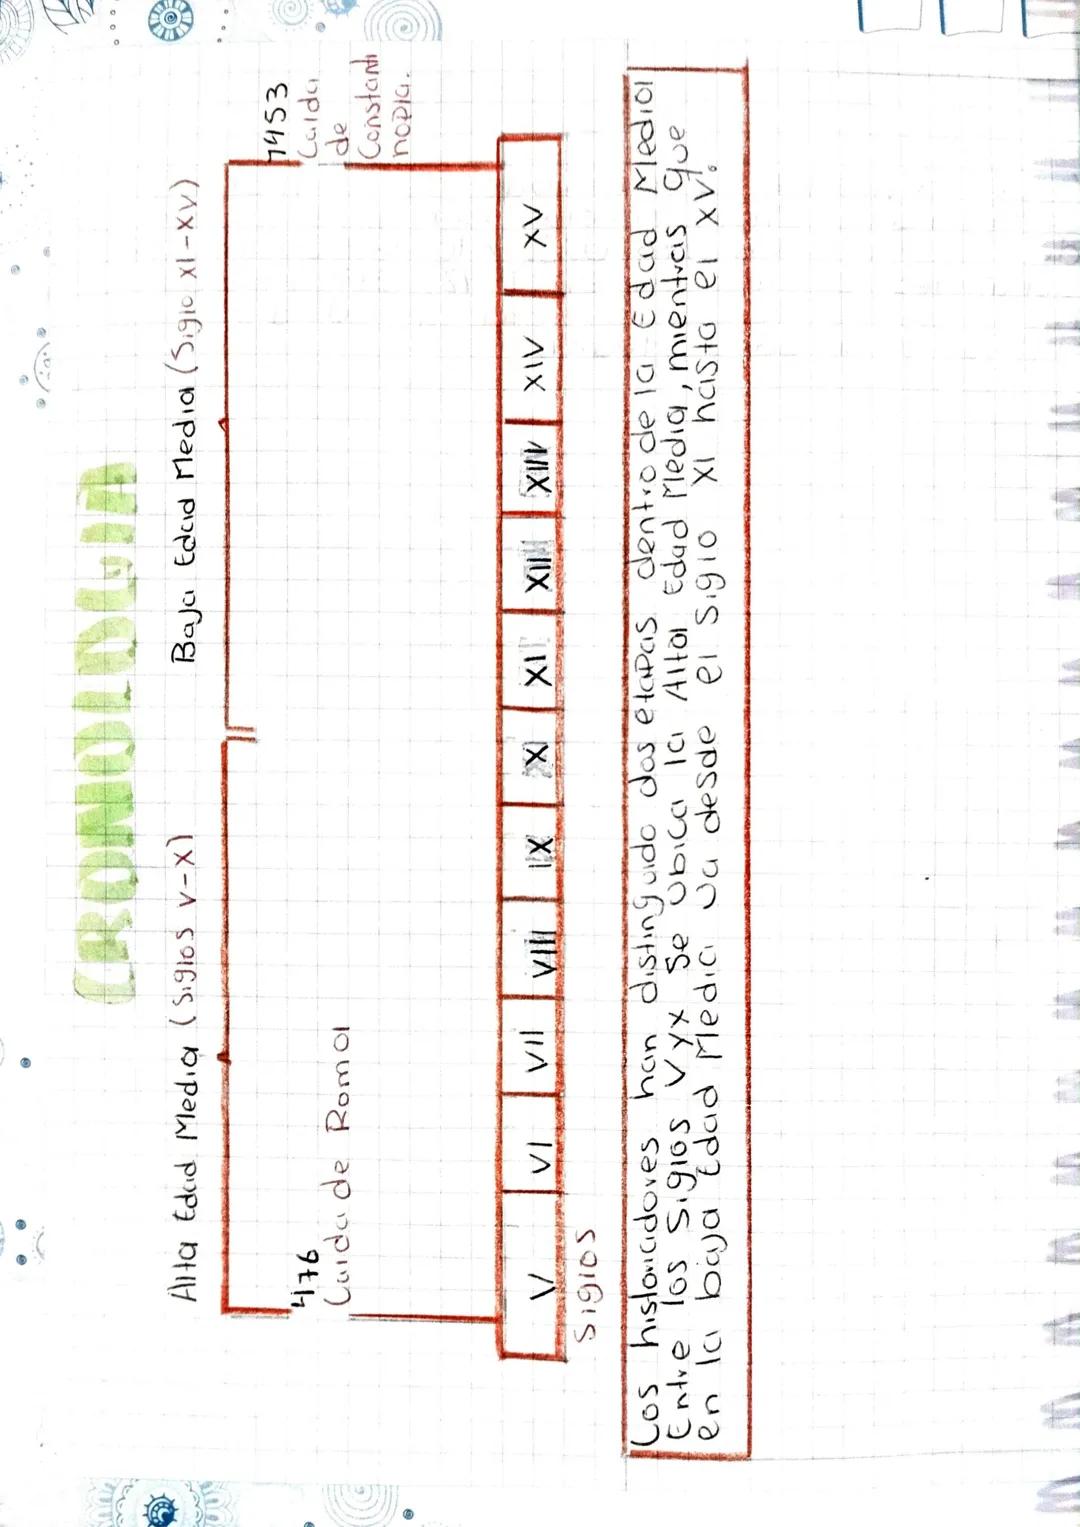 CRONOLOGIA
Alta Edad Media (Siglos V-X)
Baja Edad Media (Siglo XI-XV)
476
Caida de Roma
1453
Caida
de
Constanti
nopla.
V VI VII VIII IX X XI XII XIII XIV XV
Siglos
Los historiadores han distinguido dos etapas dentro de la Edad Media
Entre los Siglos V y X Se Ubica la Alta Edad Media, mientras que
en la baja Edad Media va desde el siglo XI hasta el XV.